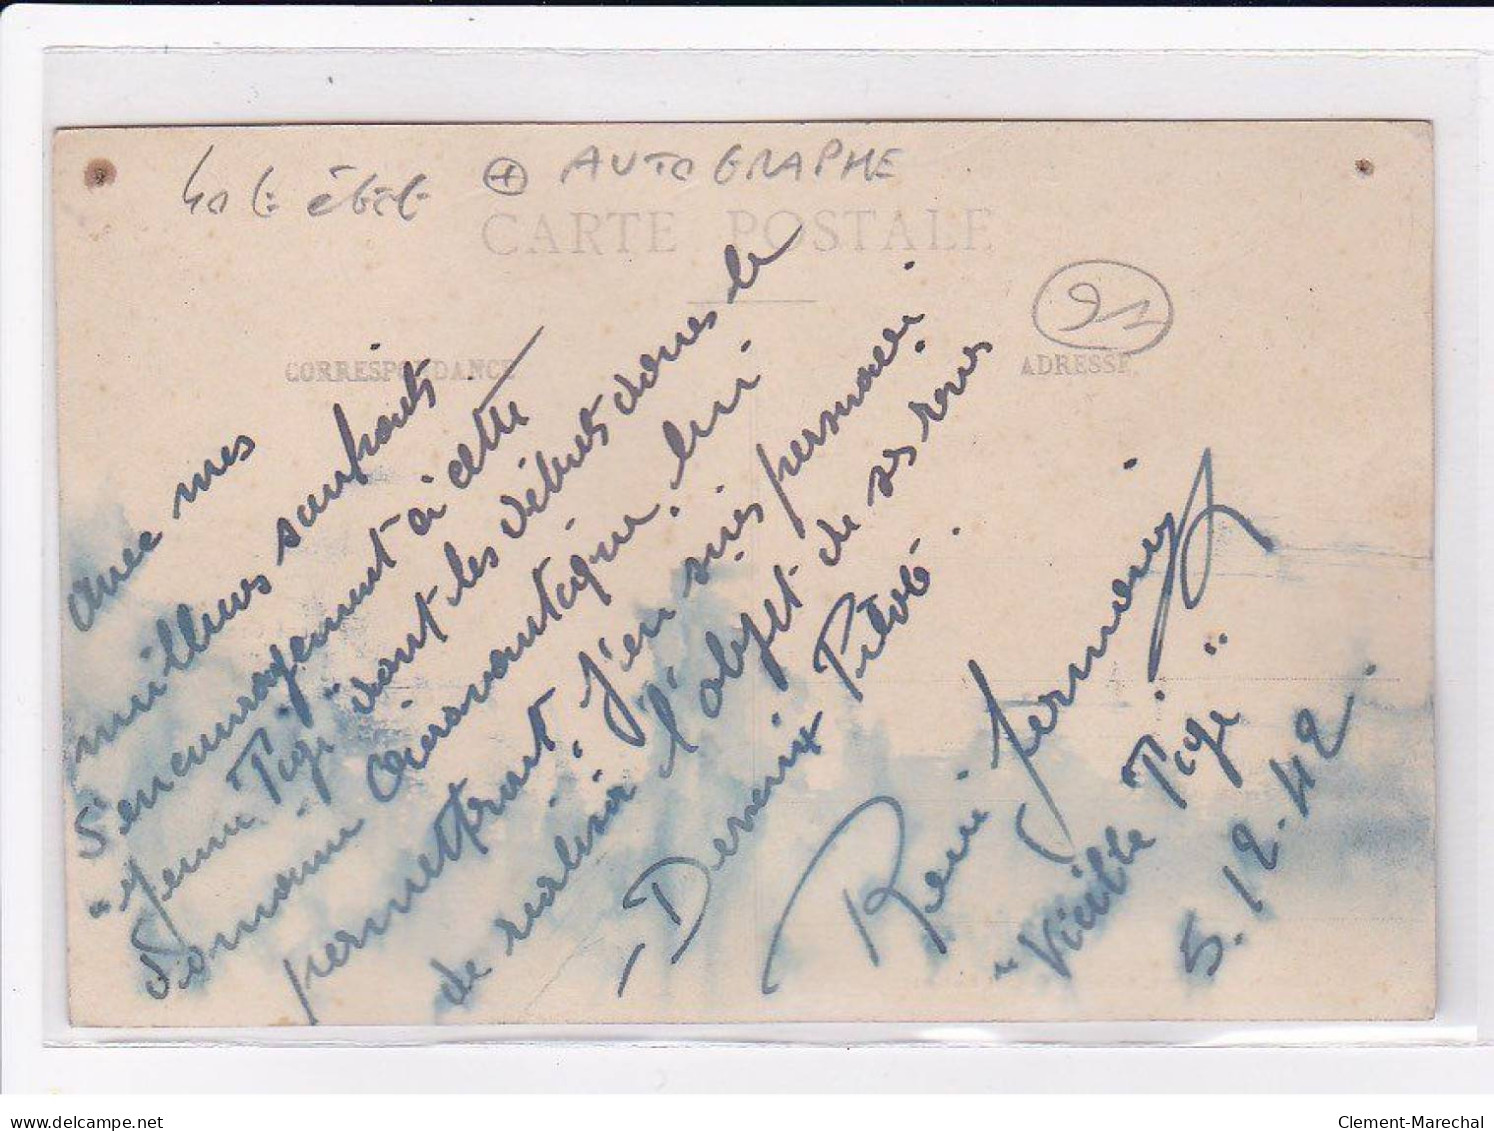 AUTOGRAPHE
CARTE POSTALE
91
CORRESPONDANCE
ADRESSE
Avec mes
meilleurs souhaits
d'encouragement à cette
"Jeune Tige" dont les débuts dans le
domaine aéronautique, lui
permettront, j'en suis persuadé
de réaliser l'objet de ses rêves
Devenir Pilote.
René
"Vieille Tige"
5.12.42.
delcampe.net
Clement-Marechal